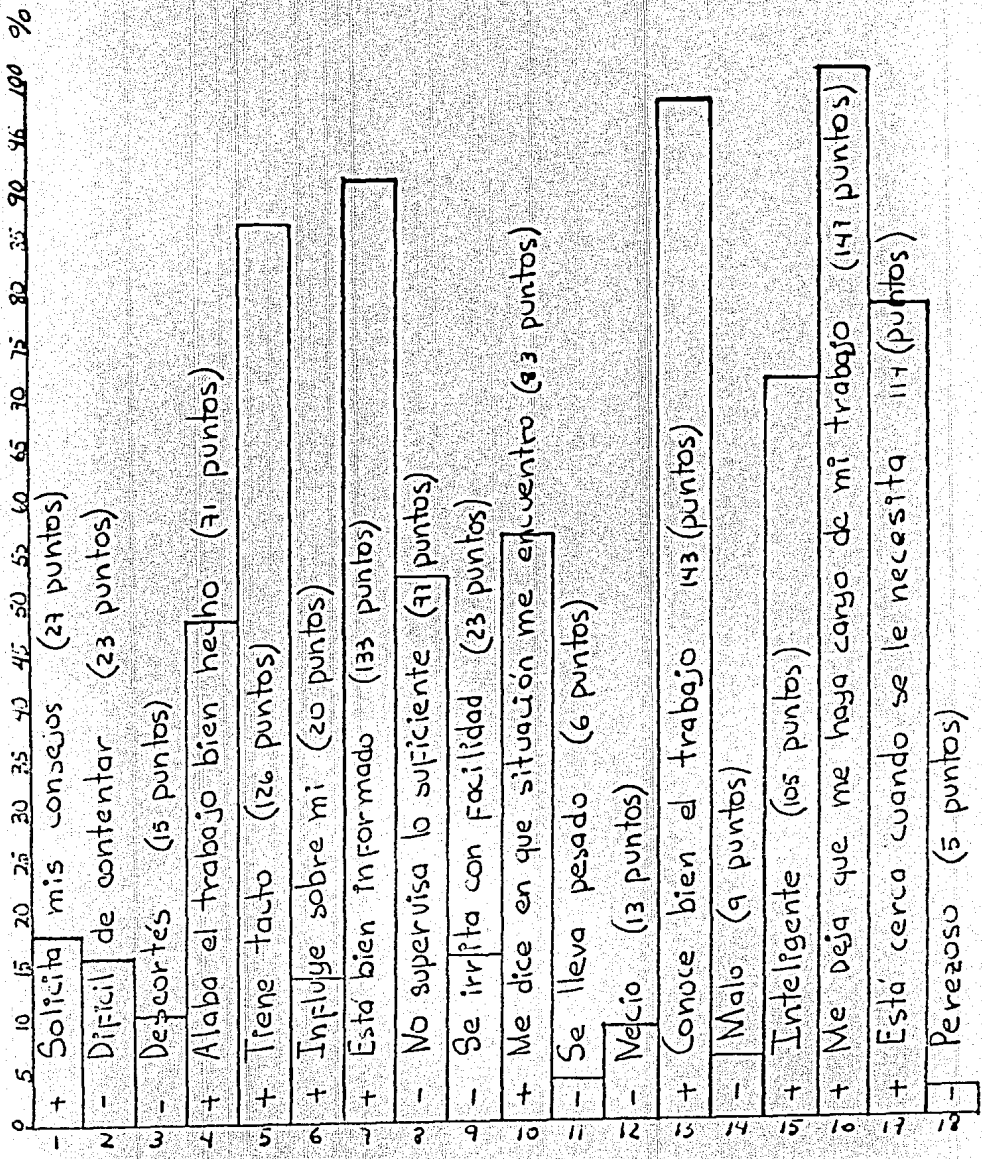 0 5 10 15 20 25 30 35 40 45 50 55 60 65 70 75 80 85 90 96 100 %
1 + Solicita mis consejos (27 puntos)
2 - Dificil de contentar (23 puntos)
3 - Descortés (15 puntos)
4 + Alaba el trabajo bien hecho (71 puntos)
5 + Tiene tacto (126 puntos)
6 + Influye sobre mi (20 puntos)
7 + Está bien informado (133 puntos)
8 - No supervisa lo suficiente (77 puntos)
9 - Se irrita con facilidad (23 puntos)
10 + Me dice en que situación me encuentro (83 puntos)
11 - Se lleva pesado (6 puntos)
12 - Necio (13 puntos)
13 + Conoce bien el trabajo 143 (puntos)
14 - Malo (9 puntos)
15 + Inteligente (105 puntos)
16 + Me deja que me haga cargo de mi trabajo (147 puntos)
17 + Está cerca cuando se le necesita 114 (puntos)
18 - Perezoso (5 puntos)